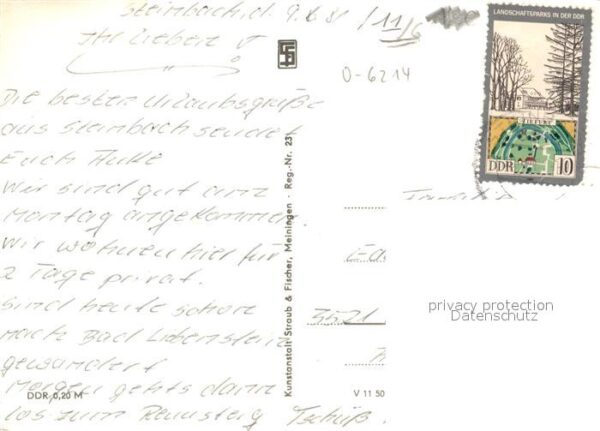 Steinbach, d. 9.6.81
Ihr Lieben
Die besten Urlaubsgrüße
aus Steinbach sendet
Euch
Wir sind gut am
Montag angekommen.
Wir wohnen hier für
2 Tage privat.
Sind heute schon
nach Bad Liebenstein
gewandert
Morgen gehts dann
los zum Rennsteig Tschüß
11/6
0-6214
LANDSCHAFTSPARKS IN DER DDR
TIEFURT
DDR 10
3521
privacy protection
Datenschutz
Kunstanstalt Straub & Fischer, Meiningen · Reg.-Nr. 23
DDR 0,20 M
V 11 50